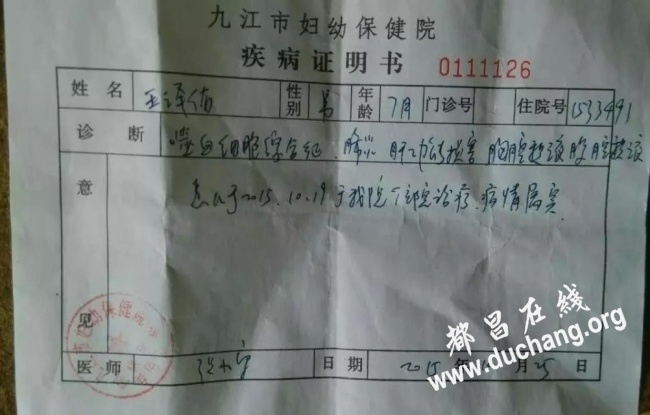 九江市妇幼保健院
疾病证明书 0111126
姓名 王泽佑 性别 男 年龄 7月 门诊号 住院号 1533491
诊断 噬血细胞综合征、肺炎 肝功能损害 胸腔积液 腹腔积液
意见
患儿于2015.10.19于我院住院治疗,病情属实
医师 日期 2015年 月25日
都昌在线
www.duchang.org